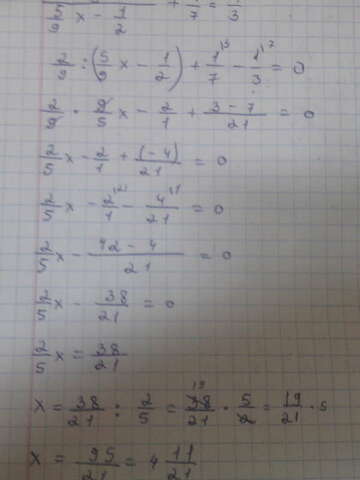 5/9 x - 1/2 + 1/7 = 1/3
2/9 : (5/9 x - 1/2) + 1^3/7 - 1^7/3 = 0
2/9 · 9/5 x - 2/1 + 3 - 7/21 = 0
2/5 x - 2/1 + (-4)/21 = 0
2/5 x - 2^21/1 - 4^1/21 = 0
2/5 x - 42 - 4/21 = 0
2/5 x - 38/21 = 0
2/5 x = 38/21
x = 38/21 : 2/5 = 38^19/21 · 5/2 = 19/21 · 5
x = 95/21 = 4 11/21